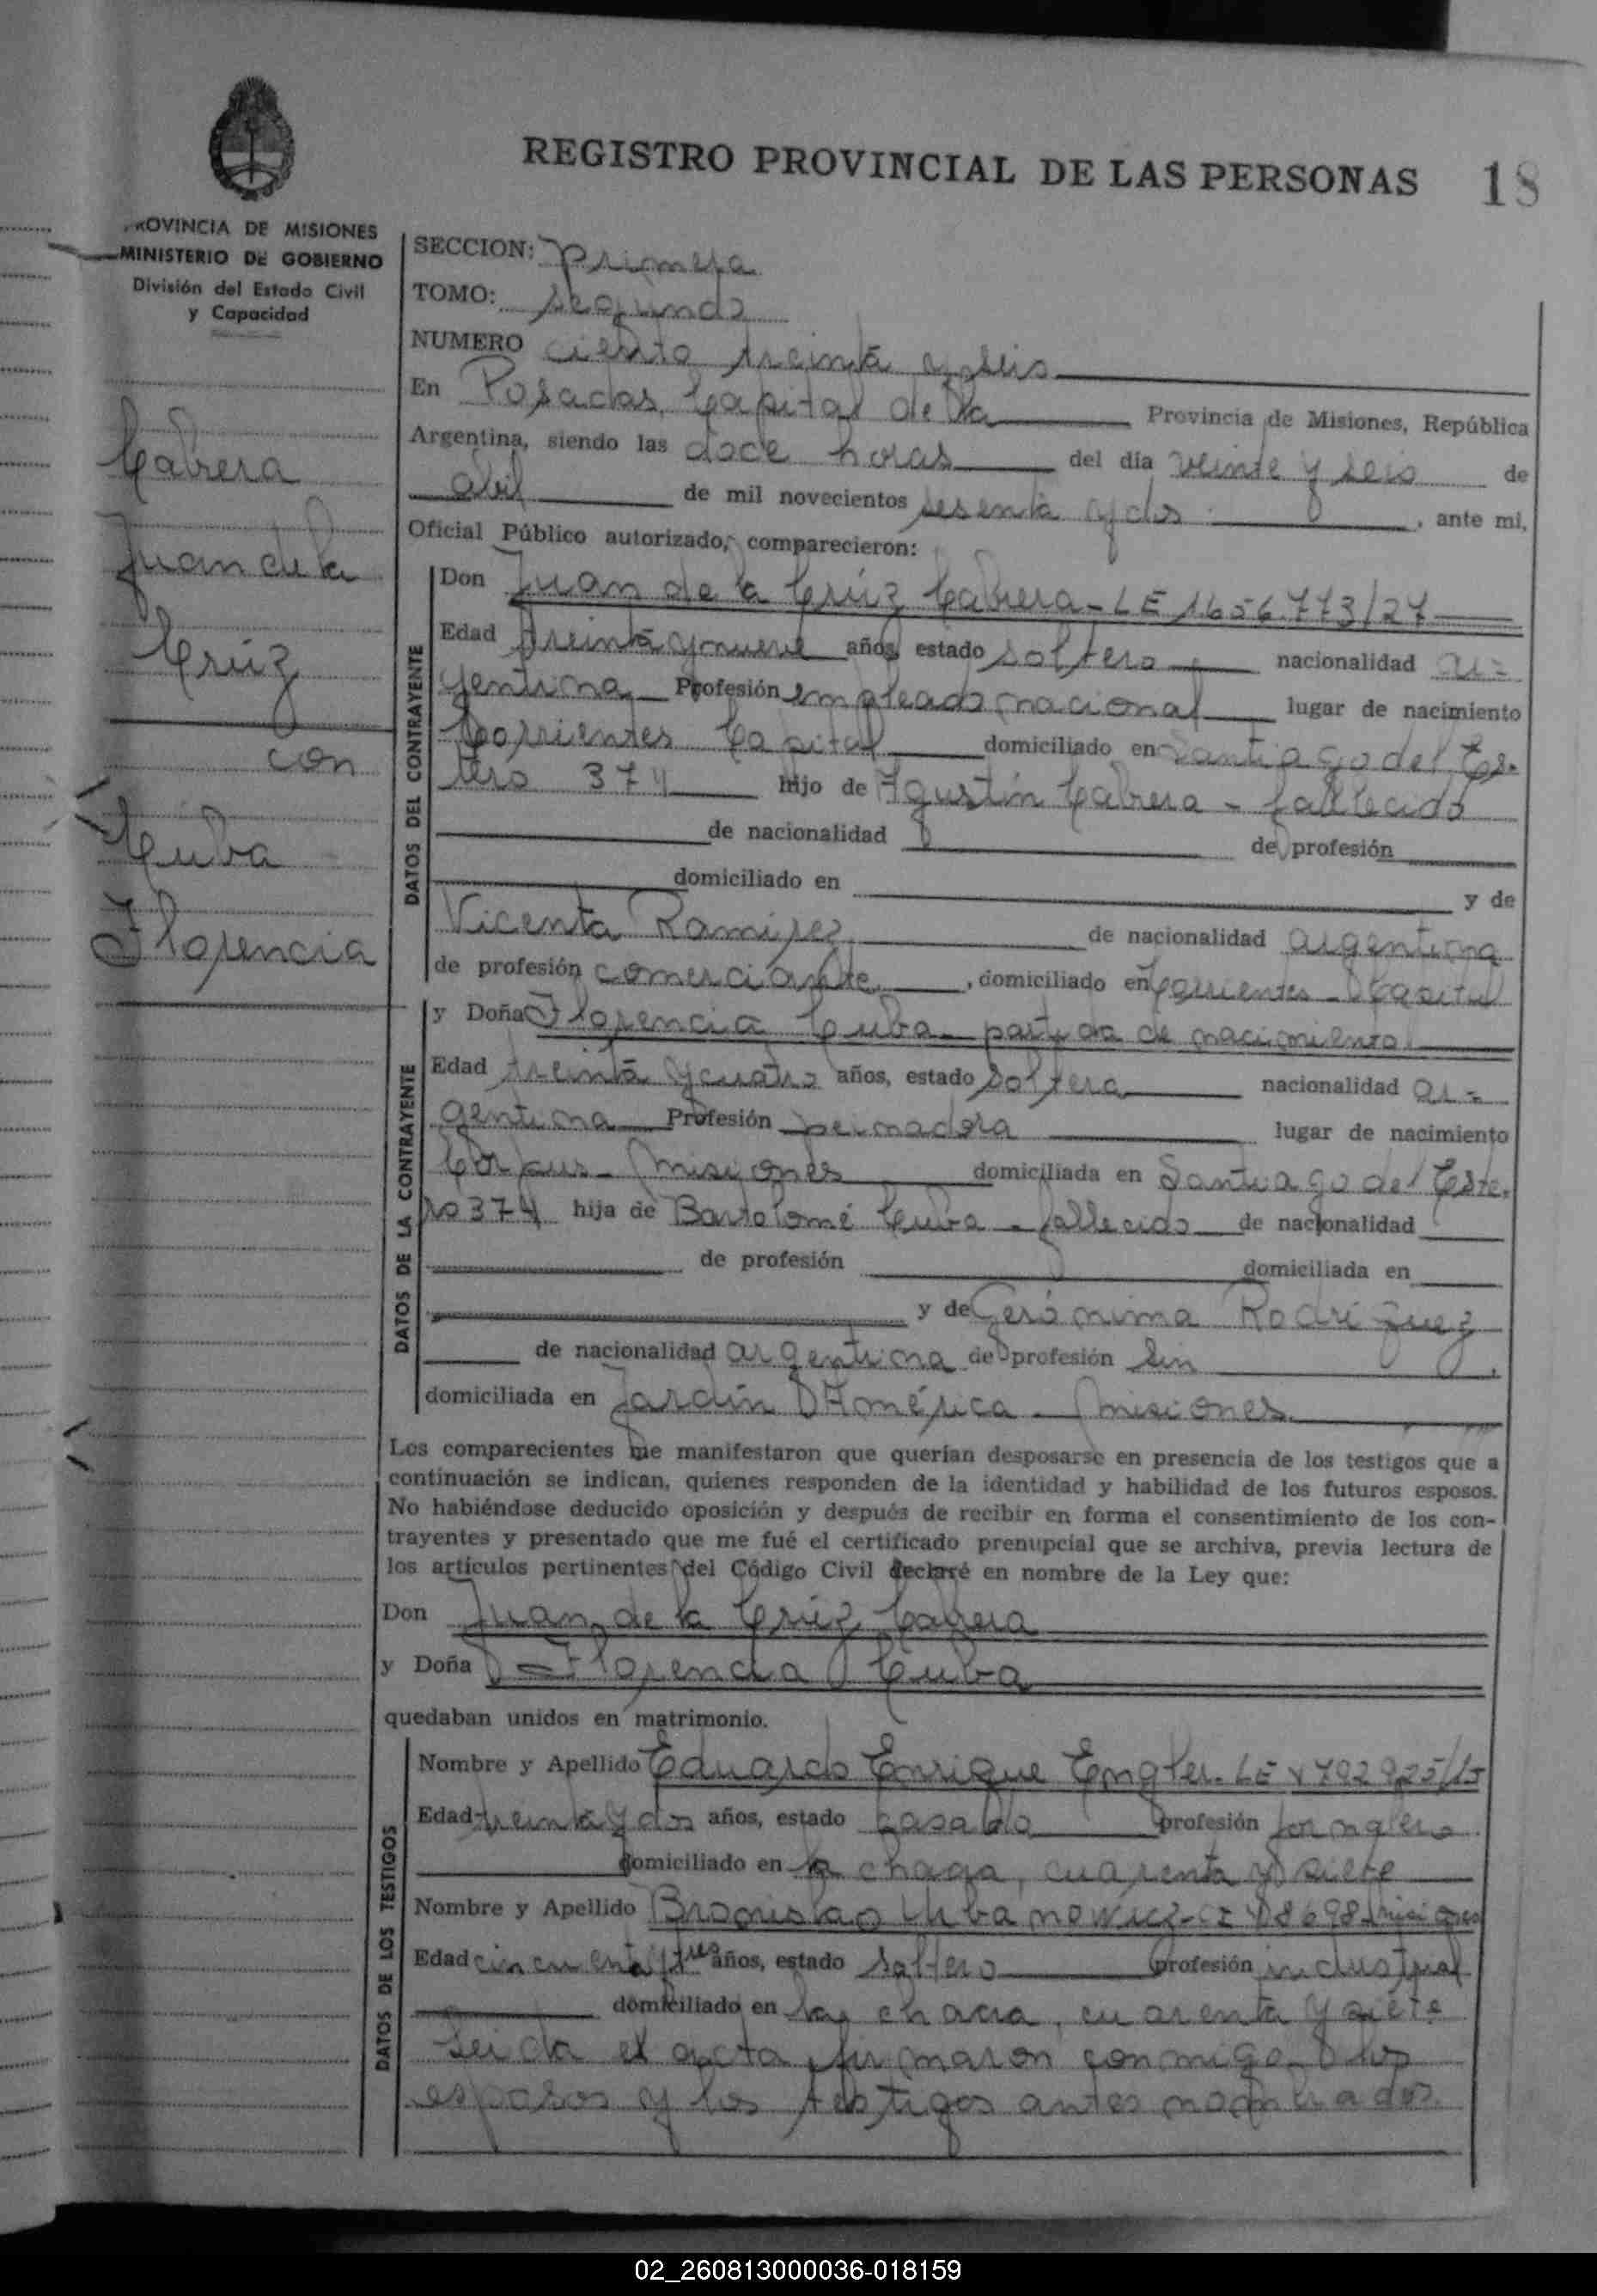 REGISTRO PROVINCIAL DE LAS PERSONAS 18
PROVINCIA DE MISIONES
MINISTERIO DE GOBIERNO
División del Estado Civil
y Capacidad
Cabrera
Juan de la
Crúz
con
Cuba
Florencia
SECCION: Primera
TOMO: segundo
NUMERO ciento treinta y seis
En Posadas, Capital de la Provincia de Misiones, República
Argentina, siendo las doce horas del día veinte y seis de
abril de mil novecientos sesenta y dos, ante mi,
Oficial Público autorizado, comparecieron:
DATOS DEL CONTRAYENTE
Don Juan de la Crúz Cabrera - LE 1.656.773/27
Edad treinta y nueve años, estado soltero nacionalidad ar=
gentina Profesión empleado nacional lugar de nacimiento
Corrientes Capital domiciliado en Santiago del Es-
tero 374 hijo de Agustín Cabrera - fallecido
de nacionalidad de profesión
domiciliado en y de
Vicenta Ramirez de nacionalidad argentina
de profesión comerciante, domiciliado en Corrientes - Capital
DATOS DE LA CONTRAYENTE
y Doña Florencia Cuba - partida de nacimiento
Edad treinta y cuatro años, estado soltera nacionalidad ar=
gentina Profesión peinadora lugar de nacimiento
Corpus - Misiones domiciliada en Santiago del Este-
ro 374 hija de Bartolomé Cuba - fallecido de nacionalidad
de profesión domiciliada en
y de Gerónima Rodriguez
de nacionalidad argentina de profesión sin,
domiciliada en Jardín América - Misiones
Los comparecientes me manifestaron que querían desposarse en presencia de los testigos que a
continuación se indican, quienes responden de la identidad y habilidad de los futuros esposos.
No habiéndose deducido oposición y después de recibir en forma el consentimiento de los con-
trayentes y presentado que me fué el certificado prenupcial que se archiva, previa lectura de
los artículos pertinentes del Código Civil declaré en nombre de la Ley que:
Don Juan de la Crúz Cabrera
y Doña Florencia Cuba
quedaban unidos en matrimonio.
DATOS DE LOS TESTIGOS
Nombre y Apellido Eduardo Enrique Engler - LE
Edad treinta y dos años, estado casado profesión
domiciliado en la chacra, cuarenta y siete
Nombre y Apellido Bronislao Urbanowicz - Misiones
Edad cincuenta y tres años, estado soltero profesión industrial
domiciliado en la chacra, cuarenta y siete
Leida el acta firmaron conmigo los
esposos y los testigos antes nombrados.
02_260813000036-018159